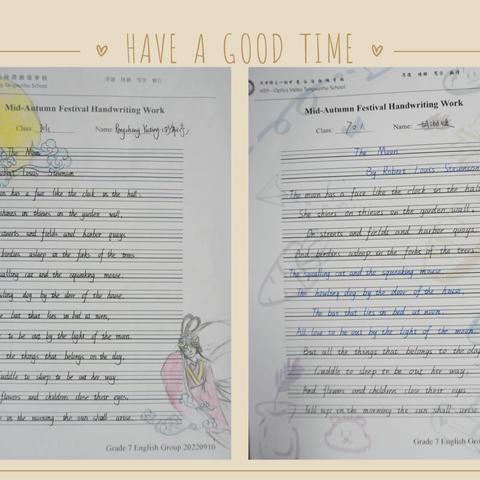 HAVE A GOOD TIME
Tangxunhu School
Mid-Autumn Festival Handwriting Work
Class: Name:
The Moon
Robert Louis Stevenson
has a face like the clock in the hall;
shines on thieves on the garden wall,
streets and fields and harbor quays
birdies asleep in the forks of the trees
squalling cat and the squeaking mouse,
howling dog by the door of the house,
bat that lies in bed at noon,
to be out by the light of the moon.
the things that belongs to the day,
Cuddle to sleep to be out her way,
flowers and children close their eyes,
in the morning the sun shall arise.
Grade 7 English Group 20220910
Optics Valley Tangxunhu School
Mid-Autumn Festival Handwriting Work
Class: 701 Name:
The Moon
By Robert Louis Stevenson
The moon has a face like the clock in the hall
She shines on thieves on the garden wall,
On streets and fields and harbor quays
And birdies asleep in the forks of the trees
The squalling cat and the squeaking mouse,
The howling dog by the door of the house,
The bat that lies in bed at noon,
All love to be out by the light of the moon
But all the things that belongs to the day
Cuddle to sleep to be out her way,
And flowers and children close their eyes
Till up in the morning the sun shall arise
Grade 7 English Group